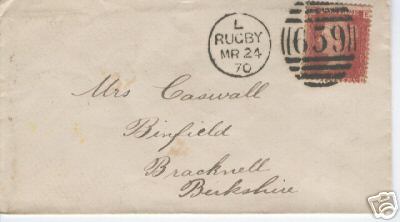 L
RUGBY
MR 24
70
659
E
Mrs Caswall
Binfield
Bracknell
Berkshire